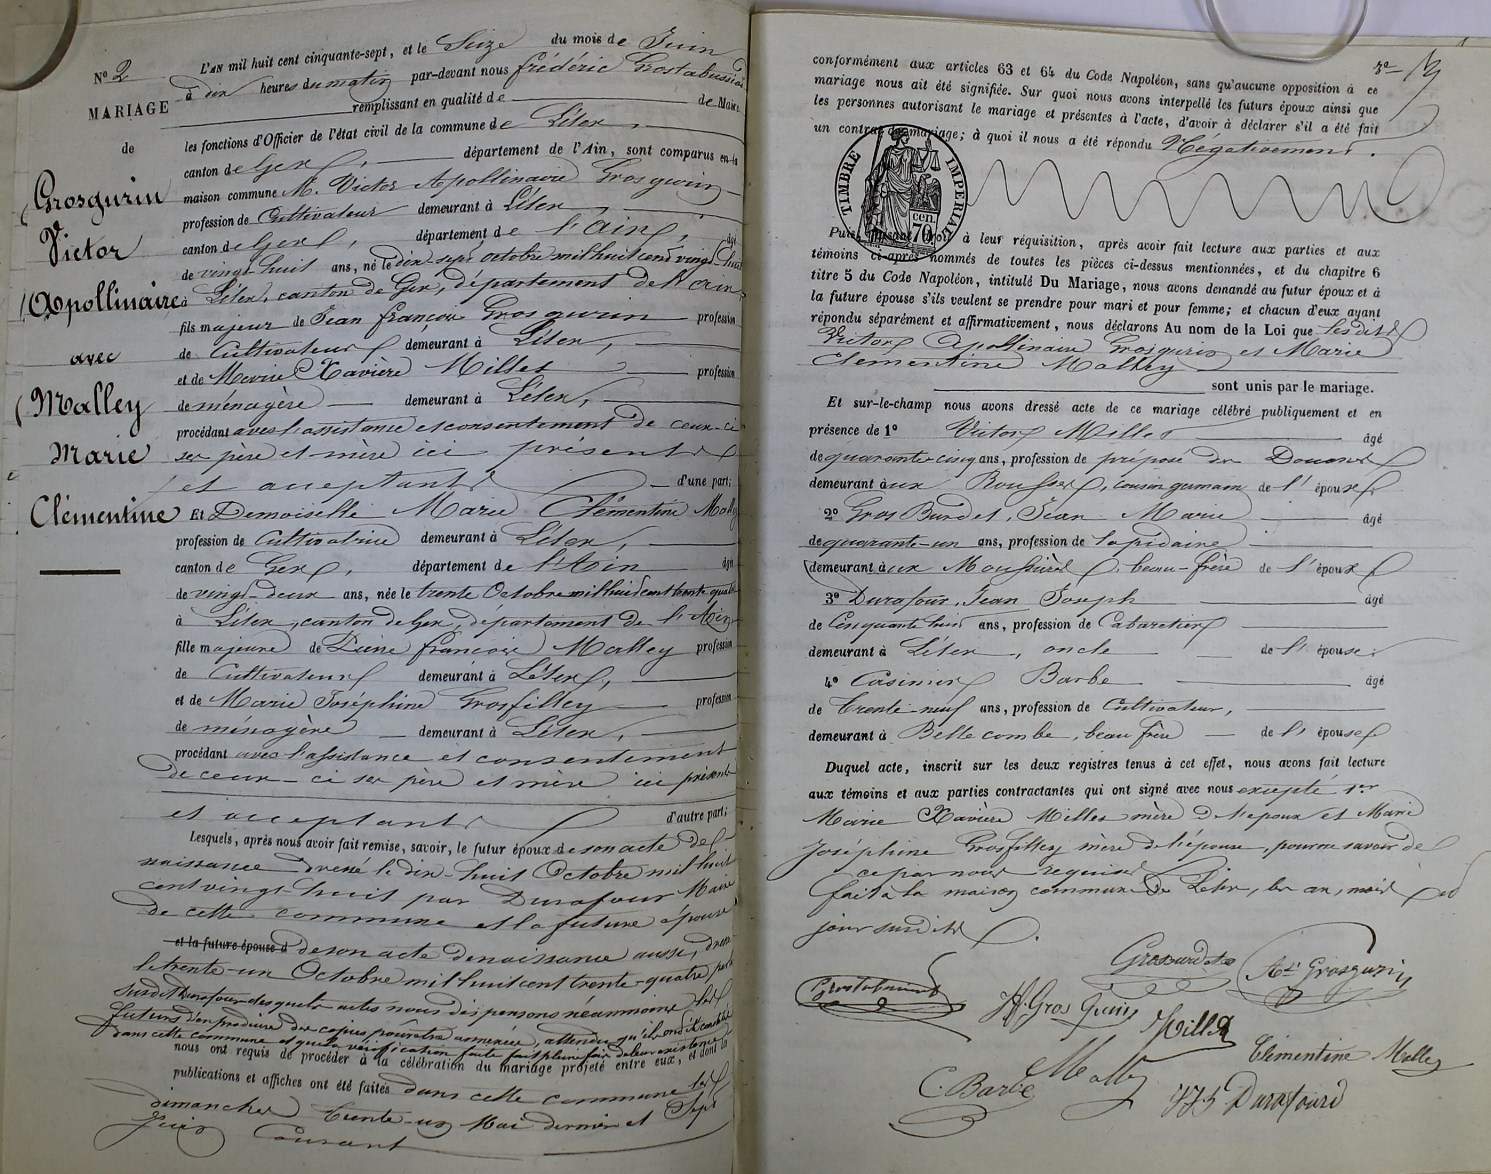 N° 2
MARIAGE
de
Grosgurin
Victor
Apollinaire
avec
Malley
Marie
Clémentine
L'AN mil huit cent cinquante-sept, et le Seize du mois de Juin
à dix heures du matin par-devant nous frédéric
remplissant en qualité de de Maire
les fonctions d'Officier de l'état civil de la commune de Lélex,
canton de Gex, département de l'Ain, sont comparus en la
maison commune M. Victor Apollinaire Grosgurin
profession de Cultivateur demeurant à Lélex,
canton de Gex, département de l'ain, âgé
de vingt-huit ans, né le dix-sept octobre mil huit cent vingt-huit
à Lélex, canton de Gex, département de l'ain,
fils majeur de Jean françois Grosgurin profession
de Cultivateur demeurant à Lélex,
et de Marie Xavière Millet profession
de ménagère demeurant à Lélex,
procédant avec l'assistance et consentement de ceux-ci
ses père et mère ici présents
et acceptants d'une part;
Et Demoiselle Marie Clémentine Malley
profession de Cultivatrice demeurant à Lélex,
canton de Gex, département de l'Ain âgée
de vingt-deux ans, née le trente Octobre mil huit cent trente quatre
à Lélex, canton de Gex, département de l'Ain
fille majeure de françois Malley profession
de Cultivateur demeurant à Lélex,
et de Marie Joséphine Grosfilley profession
de ménagère demeurant à Lélex,
procédant avec l'assistance et consentement
de ceux-ci ses père et mère ici présents
et acceptants d'autre part;
Lesquels, après nous avoir fait remise, savoir, le futur époux de son acte de
naissance dressé le dix-huit Octobre mil huit
cent vingt-huit par Durafour Maire
de cette commune et la future épouse
et la future épouse d de son acte de naissance aussi, dressé
le trente-un Octobre mil huit cent trente-quatre par le
susdit Durafour desquels actes nous dispensons néanmoins les
futurs d'en produire des copies pour être annexées, attendu qu'ils ont été
dans cette commune et que la vérification faite fait pleine foi de leur existence
nous ont requis de procéder à la célébration du mariage projeté entre eux, et dont les
publications et affiches ont été faites dans cette commune les
dimanches trente-un Mai dernier et Sept
Juin Courant
conformément aux articles 63 et 64 du Code Napoléon, sans qu'aucune opposition à ce
mariage nous ait été signifiée. Sur quoi nous avons interpellé les futurs époux ainsi que
les personnes autorisant le mariage et présentes à l'acte, d'avoir à déclarer s'il a été fait
un contrat de mariage; à quoi il nous a été répondu Négativement.
TIMBRE IMPERIAL
70 cen.
Puis, faisant droit à leur réquisition, après avoir fait lecture aux parties et aux
témoins ci-après nommés de toutes les pièces ci-dessus mentionnées, et du chapitre 6
titre 5 du Code Napoléon, intitulé Du Mariage, nous avons demandé au futur époux et à
la future épouse s'ils veulent se prendre pour mari et pour femme; et chacun d'eux ayant
répondu séparément et affirmativement, nous déclarons Au nom de la Loi que lesdits
Victor Apollinaire Grosgurin et Marie
Clémentine Malley
sont unis par le mariage.
Et sur-le-champ nous avons dressé acte de ce mariage célébré publiquement et en
présence de 1° Victor Millet âgé
de quarante-cinq ans, profession de préposé des Douanes
demeurant aux Rousses, cousin germain de l'époux
2° Gros Burdet, Jean Marie âgé
de quarante-un ans, profession de lapidaire
demeurant aux Moussières, beau-frère de l'époux
3° Durafour, Jean Joseph âgé
de Cinquante huit ans, profession de Cabaretier
demeurant à Lélex, oncle de l'épouse
4° Casimir Barbe âgé
de trente-neuf ans, profession de Cultivateur,
demeurant à Belle combe, beau frère de l'épouse
Duquel acte, inscrit sur les deux registres tenus à cet effet, nous avons fait lecture
aux témoins et aux parties contractantes qui ont signé avec nous excepté
Marie Xavière Millet mère de l'époux et Marie
Joséphine Grosfilley mère de l'épouse, pour ne savoir de
ce par nous requises
fait à la maison commune de Lélex, les an, mois et
jour susdits.
Grosburdet
Grosgurin
Grosgurin
Millet
Clémentine Malley
C. Barbe
Malley
JJh Durafourd